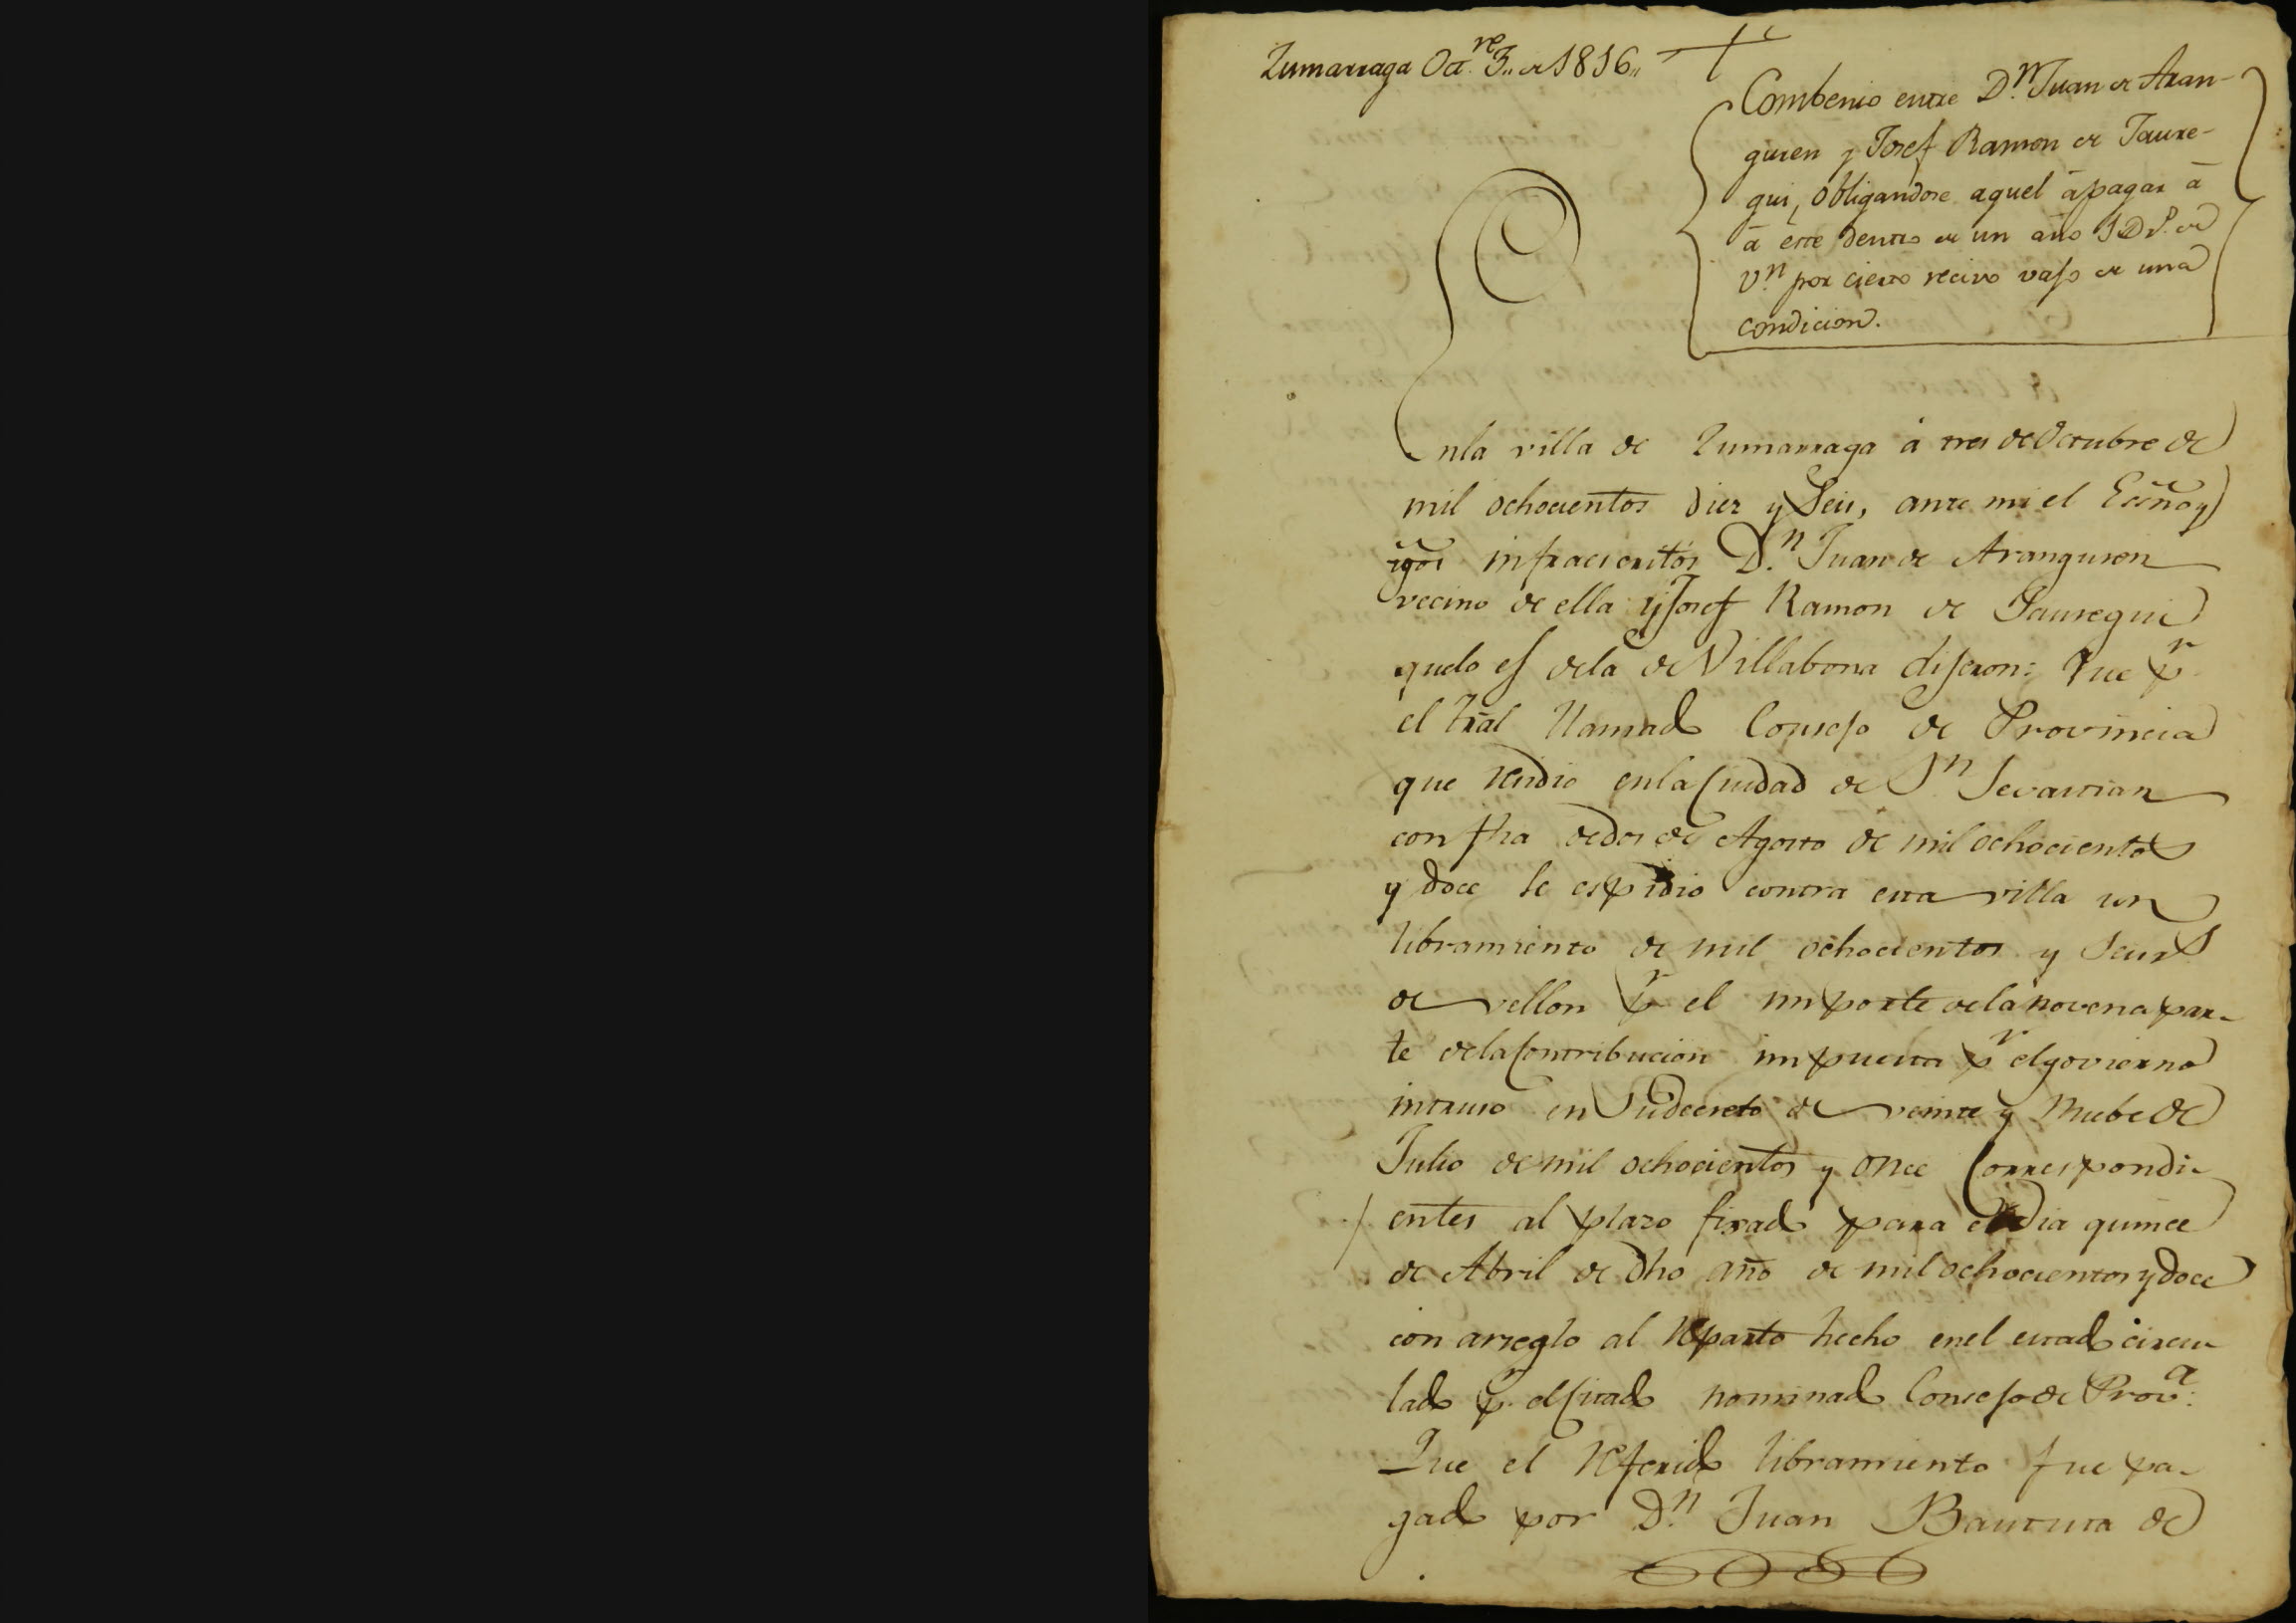 Zumarraga Oct.re 3,, de 1816,,
Combenio entre D.n Juan de Aran-
guren y Josef Ramon de Jaure-
gui, obligandose aquel á pagar á
á este dentro de un año rs. de
v.n por cierto recivo vajo de una
condicion.
Enla villa de Zumarraga á tres de Octubre de
mil ochocientos diez y Seis, ante mi el Essno y
tgos infraescritos D.n Juan de Aranguren
vecino de ella y Josef Ramon de Jauregui
quelo es dela de Villabona dijeron: Que pr
el Tral llamado Consejo de Provincia
que residio enla Ciudad de Sn Sevastian
con fha dedos de Agosto de mil ochocientos
y doce se espidio contra esta villa un
libramiento de mil ochocientos y Seis rs
de vellon pr el importe dela novena par-
te dela Contribucion impuesta pr elgovierno
intruso en Sudecreto de veinte y Nuebe de
Julio de mil ochocientos y once Correspondi-
entes al plazo fixado para el dia quince
de Abril de dho año de mil ochocientos y doce
con arreglo al Reparto hecho enel estado circu-
lado pr elCitado nominado Consejo de Prov.a
Que el Referido libramiento fue pa-
gado por D.n Juan Bautista de